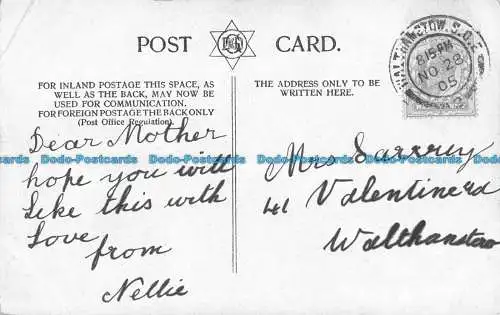 POST CARD.
WALTHAMSTOW. S.O.
8.15 PM
NO 28
05
FOR INLAND POSTAGE THIS SPACE, AS
WELL AS THE BACK, MAY NOW BE
USED FOR COMMUNICATION.
FOR FOREIGN POSTAGE THE BACK ONLY
(Post Office Regulation).
THE ADDRESS ONLY TO BE
WRITTEN HERE.
Dear Mother
hope you will
like this with
Love
from
Nellie
Mrs
41 Valentine rd
Walthamstow
Dodo-Postcards Dodo-Postcards Dodo-Postcards Dodo-Postcards Dodo-Postcards
Dodo-Postcards Dodo-Postcards Dodo-Postcards Dodo-Postcards Dodo-Postcards